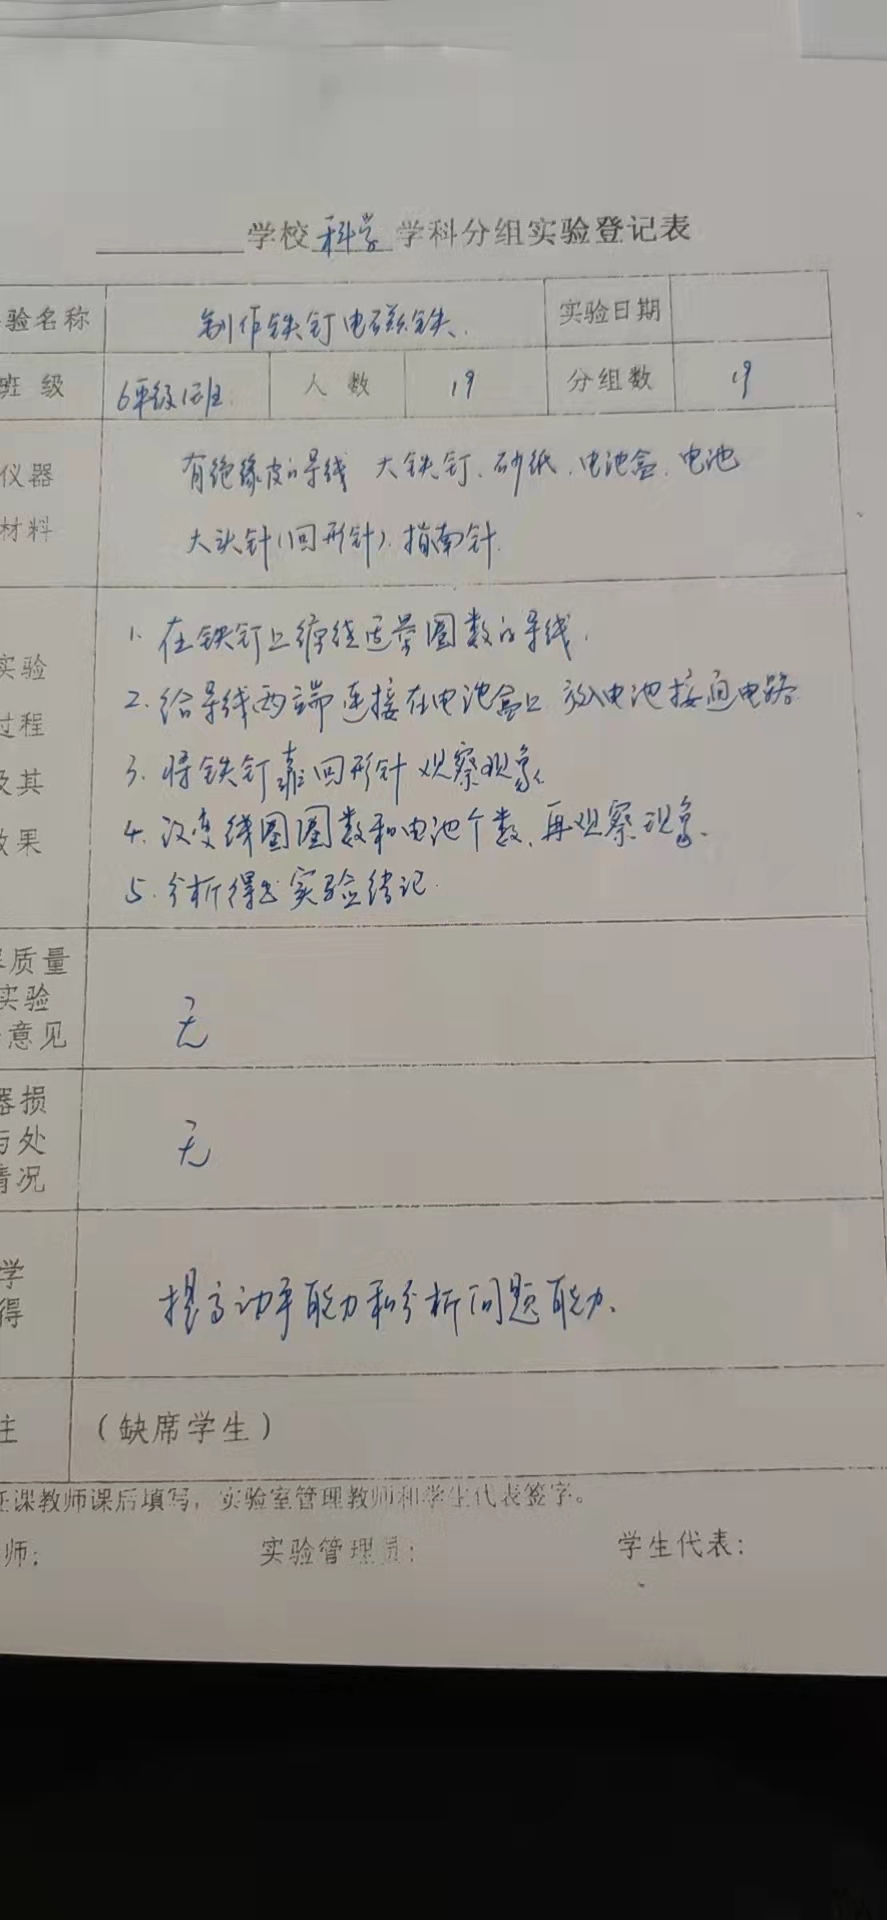 学校 科学 学科分组实验登记表
验名称 制作铁钉电磁铁. 实验日期
班 级 6年级1班. 人 数 19 分组数 19
仪器
材料
有绝缘皮的导线 大铁钉、砂纸、电池盒、电池
大头针(回形针)、指南针.
实验
过程
及其
效果
1. 在铁钉上缠绕适量圈数的导线.
2. 给导线两端连接在电池盒上 放入电池接通电路
3. 将铁钉靠近回形针 观察现象.
4. 改变线圈圈数和电池个数、再观察现象.
5. 分析得出实验结记.
质量
实验
意见
无
器损
与处
情况
无
学
得
提高动手能力和分析问题能力.
注 (缺席学生)
任课教师课后填写，实验室管理教师和学生代表签字。
师： 实验管理员： 学生代表：